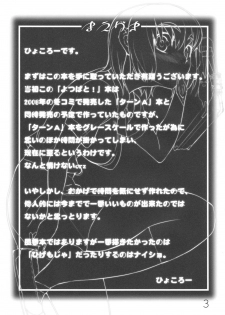 ひょころーです。
まずはこの本を手に取っていただき有難うございます。
当初この「よつばと!」本は
2006年の冬コミで発売した「ターンA」と
同時発売の予定で作っていたものですが、
「ターンA」本をグレースケールで作ったが為に
思いのほか時間が掛かってしまい、
別冊に至るというわけです。
なんと情けないorz
いやしかし、おかげで時間を気にせず作れたので、
個人的には今までで一番いいものが出来たのでは
ないかと思っとります。
本ではありますが一番描きたかったのは
「ひげもじゃ」だったりするのはナイショ。
ひょころー
3